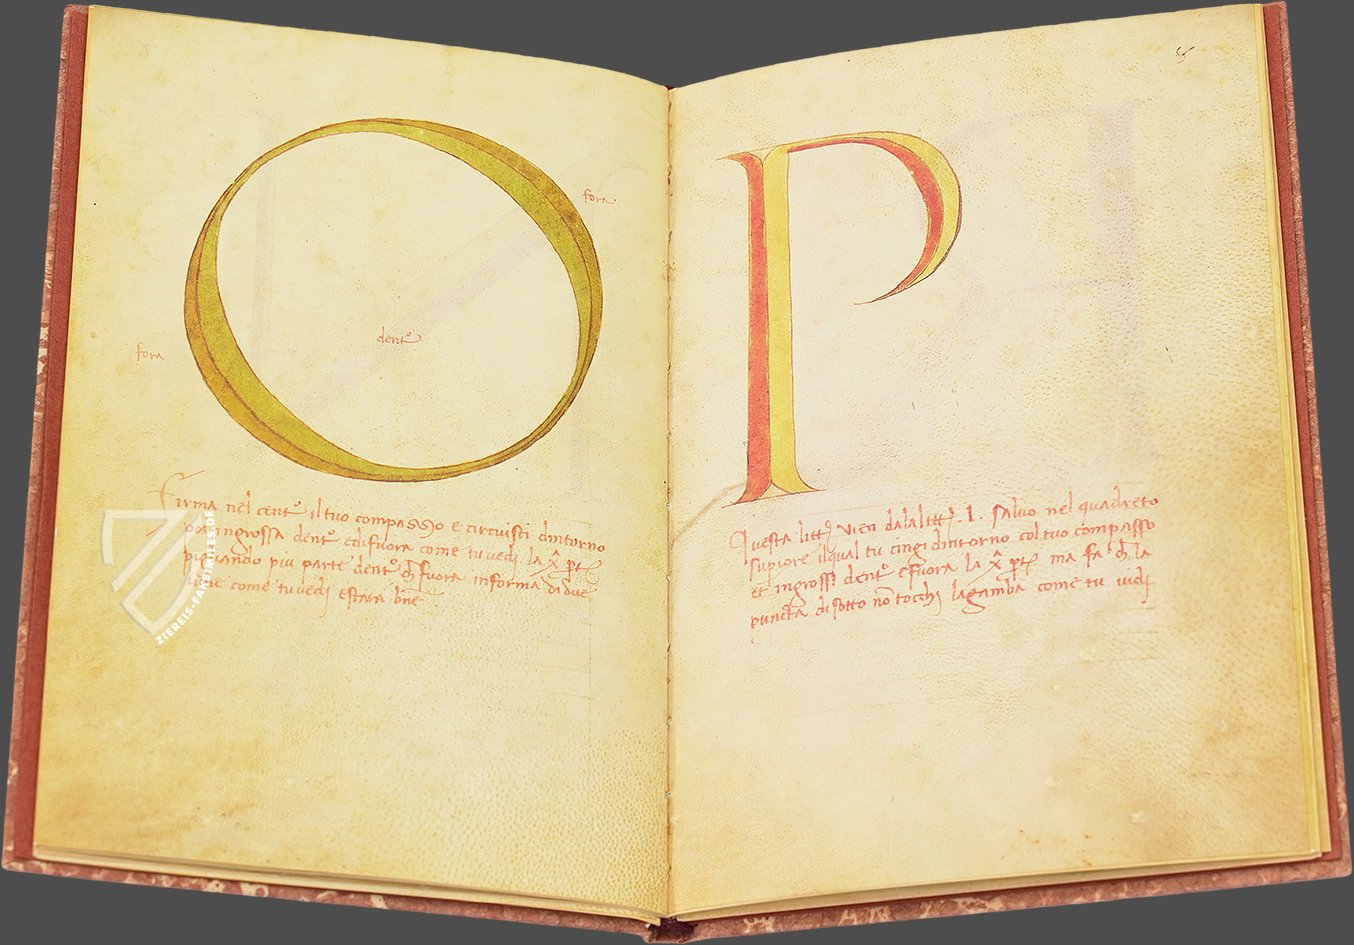 O
fora
dentº
fora
Firma nel centº il tuo compasso e circuisti dintorno
poi ingrossa dentº et difuora come tu vedi la x pte
pigliando piu parte dentº che fuora in forma di due
lune come tu vedi e stara bñe
P
Questa litt vien dala litt. I. salvo nel quadreto
supiore il qual tu cingi dintorno col tuo compasso
et ingrossi dentº e fuora la x pte ma fa ch la
puncta di sotto nõ tocchi la gamba come tu vidi
ZIEREIS-FAKSIMILES.DE